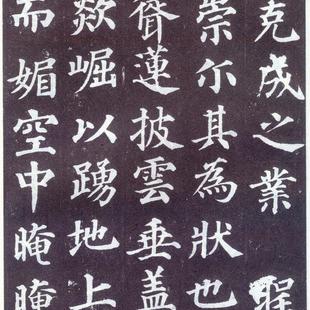 克成之業
崇尔其為狀也
聳蓮披雲垂盖
欻崛以踴地上
而媚空中晻晻